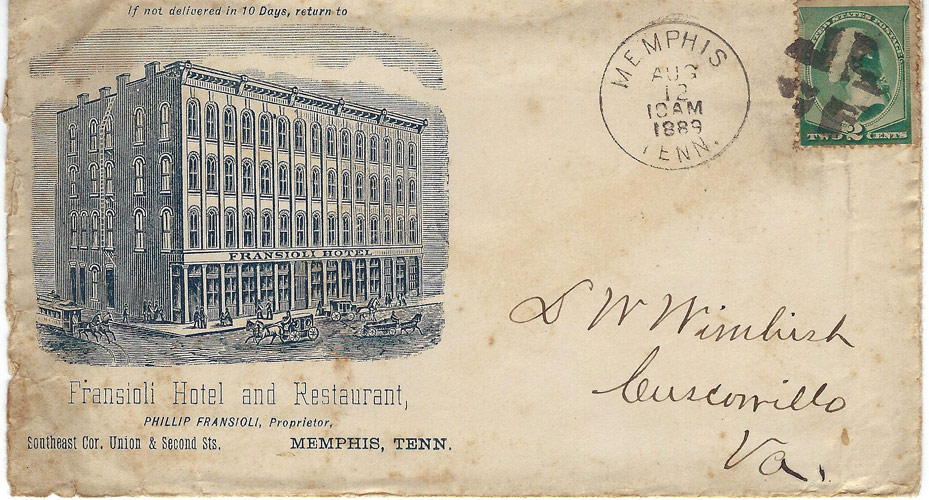 If not delivered in 10 Days, return to
FRANSIOLI HOTEL
Fransioli Hotel and Restaurant,
PHILLIP FRANSIOLI, Proprietor,
Southeast Cor. Union & Second Sts. MEMPHIS, TENN.
MEMPHIS
AUG
12
10AM
1889
TENN.
UNITED STATES POSTAGE
TWO 2 CENTS
S W Wimbish
Cuscowillo
Va.